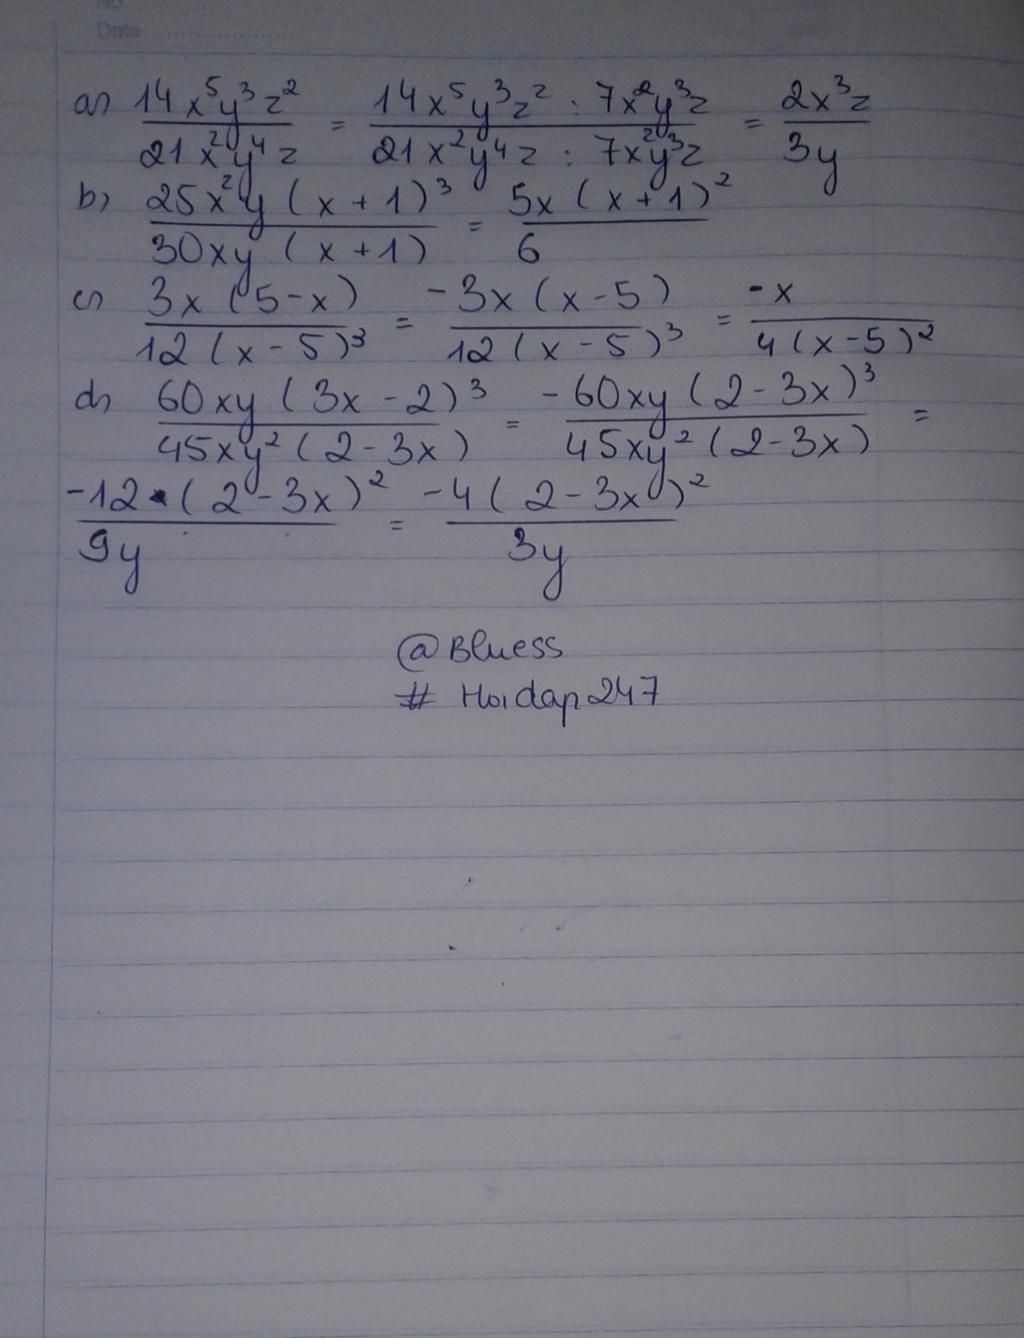 No.
Date
a) 14x⁵y³z² / 21x²y⁴z = 14x⁵y³z² : 7x²y³z / 21x²y⁴z : 7x²y³z = 2x³z / 3y
b) 25x²y(x+1)³ / 30xy(x+1) = 5x(x+1)² / 6
c) 3x(5-x) / 12(x-5)³ = -3x(x-5) / 12(x-5)³ = -x / 4(x-5)²
d) 60xy(3x-2)³ / 45xy²(2-3x) = -60xy(2-3x)³ / 45xy²(2-3x) =
-12.(2-3x)² / 9y = -4(2-3x)² / 3y
@Bluess
# Hoidap247